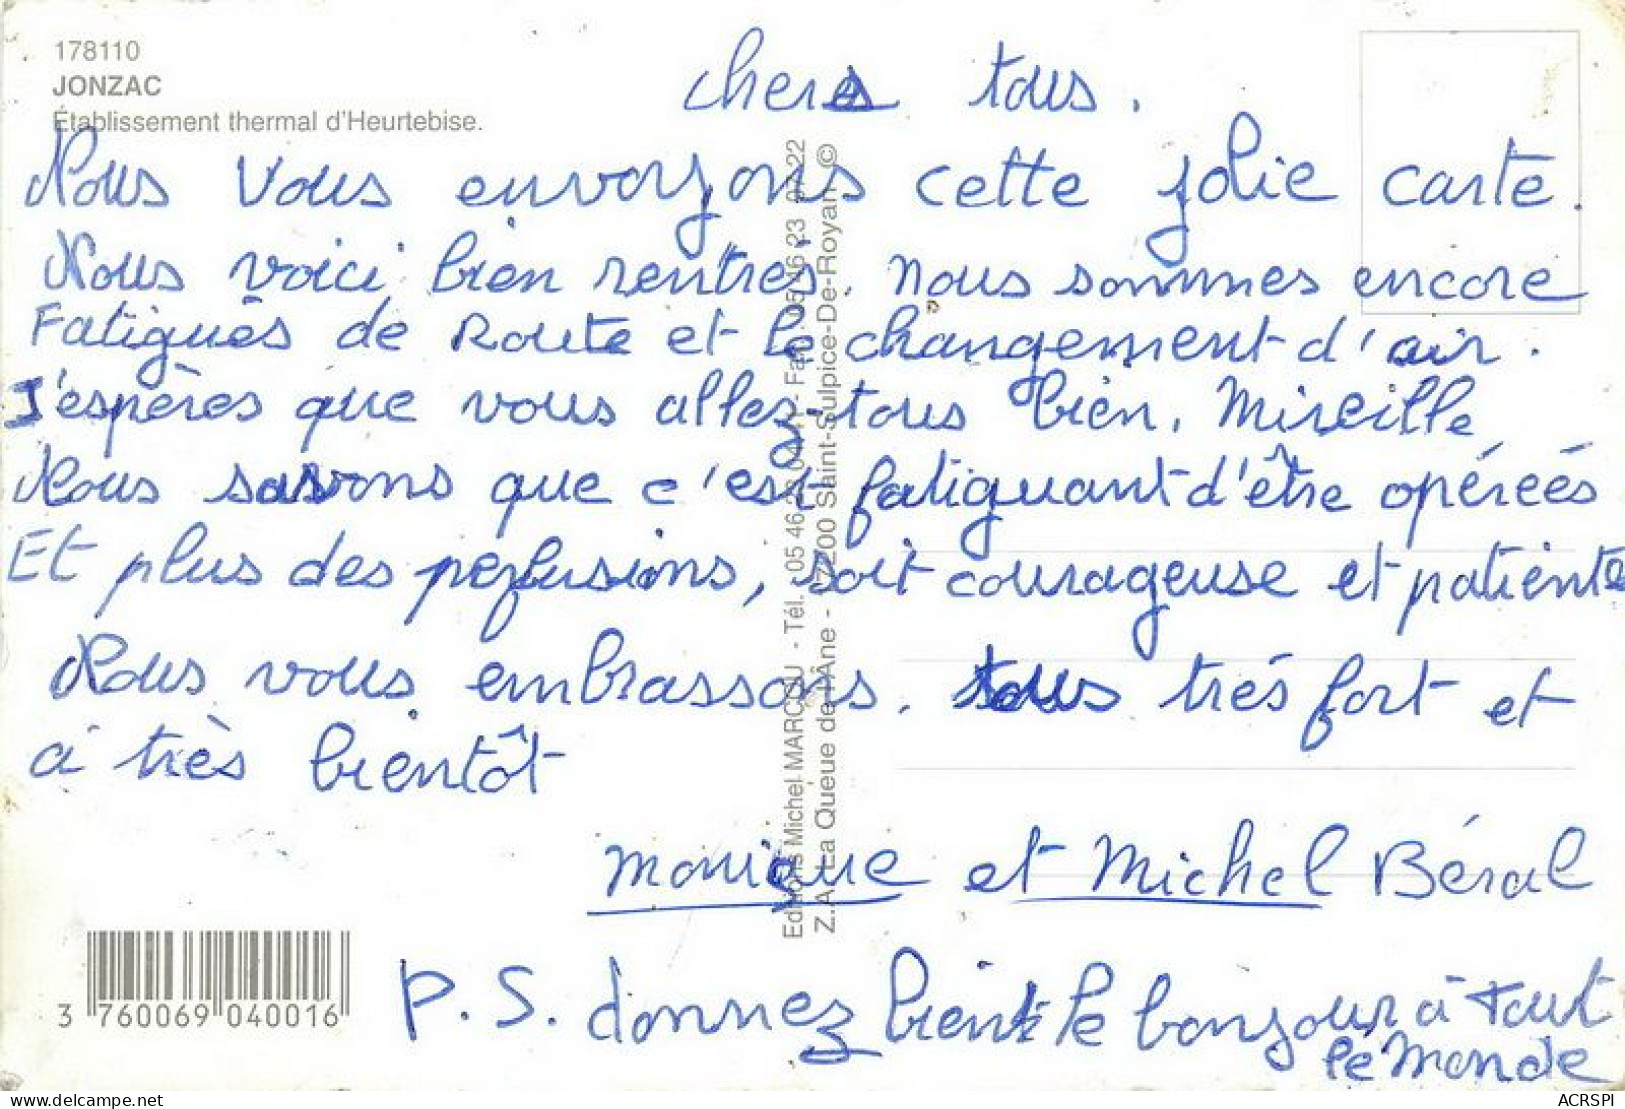 178110
JONZAC
Établissement thermal d'Heurtebise.
chers tous.
Nous vous envoyons cette jolie carte.
Nous voici bien rentrés. nous sommes encore
Fatigués de Route et le changement d'air.
J'espères que vous allez tous bien, Mireille
Nous savons que c'est fatiguant d'être opéreés
Et plus des perfusions, soit courageuse et patiente
Nous vous embrassons. tous trés fort et
à très bientôt
Monique et Michel Béral
P.S. donnez bient le bonjour à tout
le Monde
Editions Michel MARCOU - Tél. 05 46 - Fax. 05 46 23 22
Z.A. La Queue de l'Âne - 17200 Saint-Sulpice-De-Royan ©
3 760069 040016
delcampe.net
ACRSPI